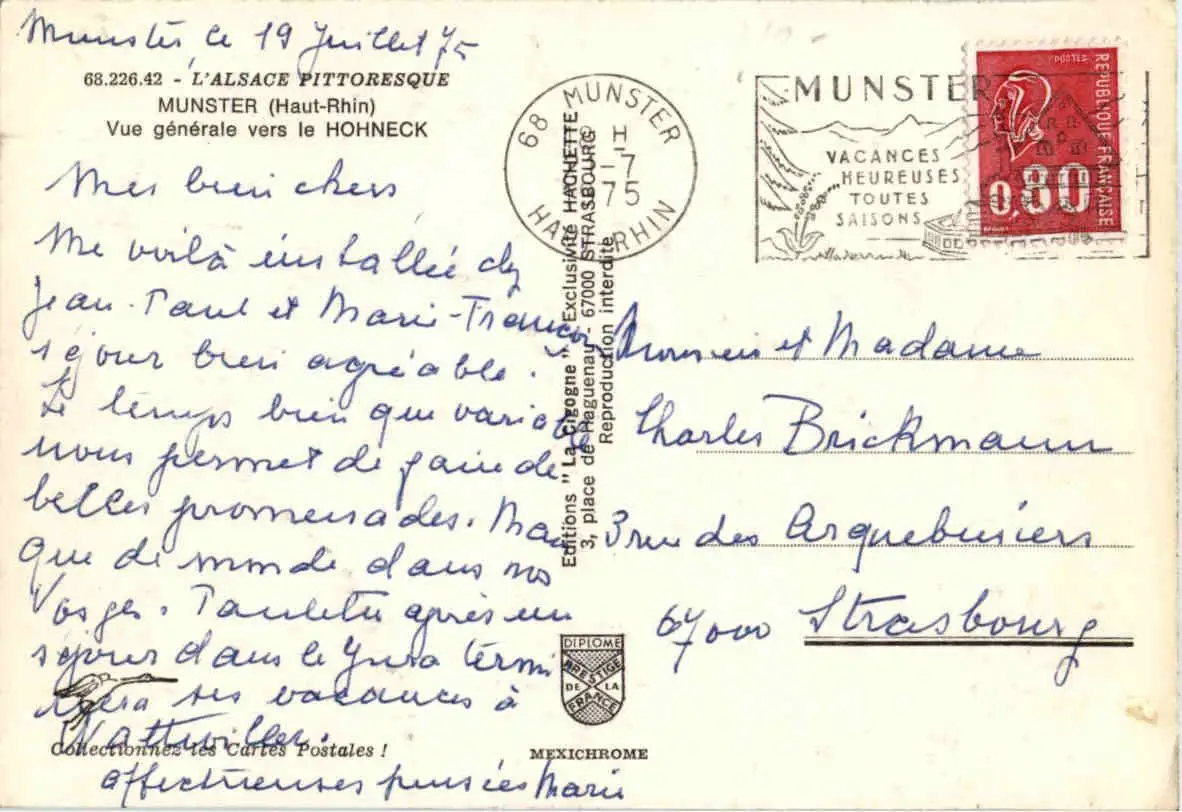 Munster le 19 Juillet 75
68.226.42 - L'ALSACE PITTORESQUE
MUNSTER (Haut-Rhin)
Vue générale vers le HOHNECK
Mes bien chers
Me voilà installée chez
Jean-Paul et Marie-Françoise,
séjour bien agréable.
Le temps bien que variable
nous permet de faire de
belles promenades. Mais
que de monde dans nos
Vosges. Paulette après un
séjour dans le Jura termi
nera ses vacances à
Wattwiller.
affectueuses pensées Marie
Collectionnez les Cartes Postales !
Editions "La Cigogne" Exclusivité HACHETTE
3, place de Haguenay - 67000 STRASBOURG
Reproduction interdite
DIPLOME
PRESTIGE
DE LA
FRANCE
MEXICHROME
68 MUNSTER
H
-7
75
HAUT-RHIN
MUNSTER
VACANCES
HEUREUSES
TOUTES
SAISONS
POSTES
REPUBLIQUE FRANÇAISE
0,80
Monsieur et Madame
Charles Brickmann
3 rue des Arquebusiers
67000 Strasbourg